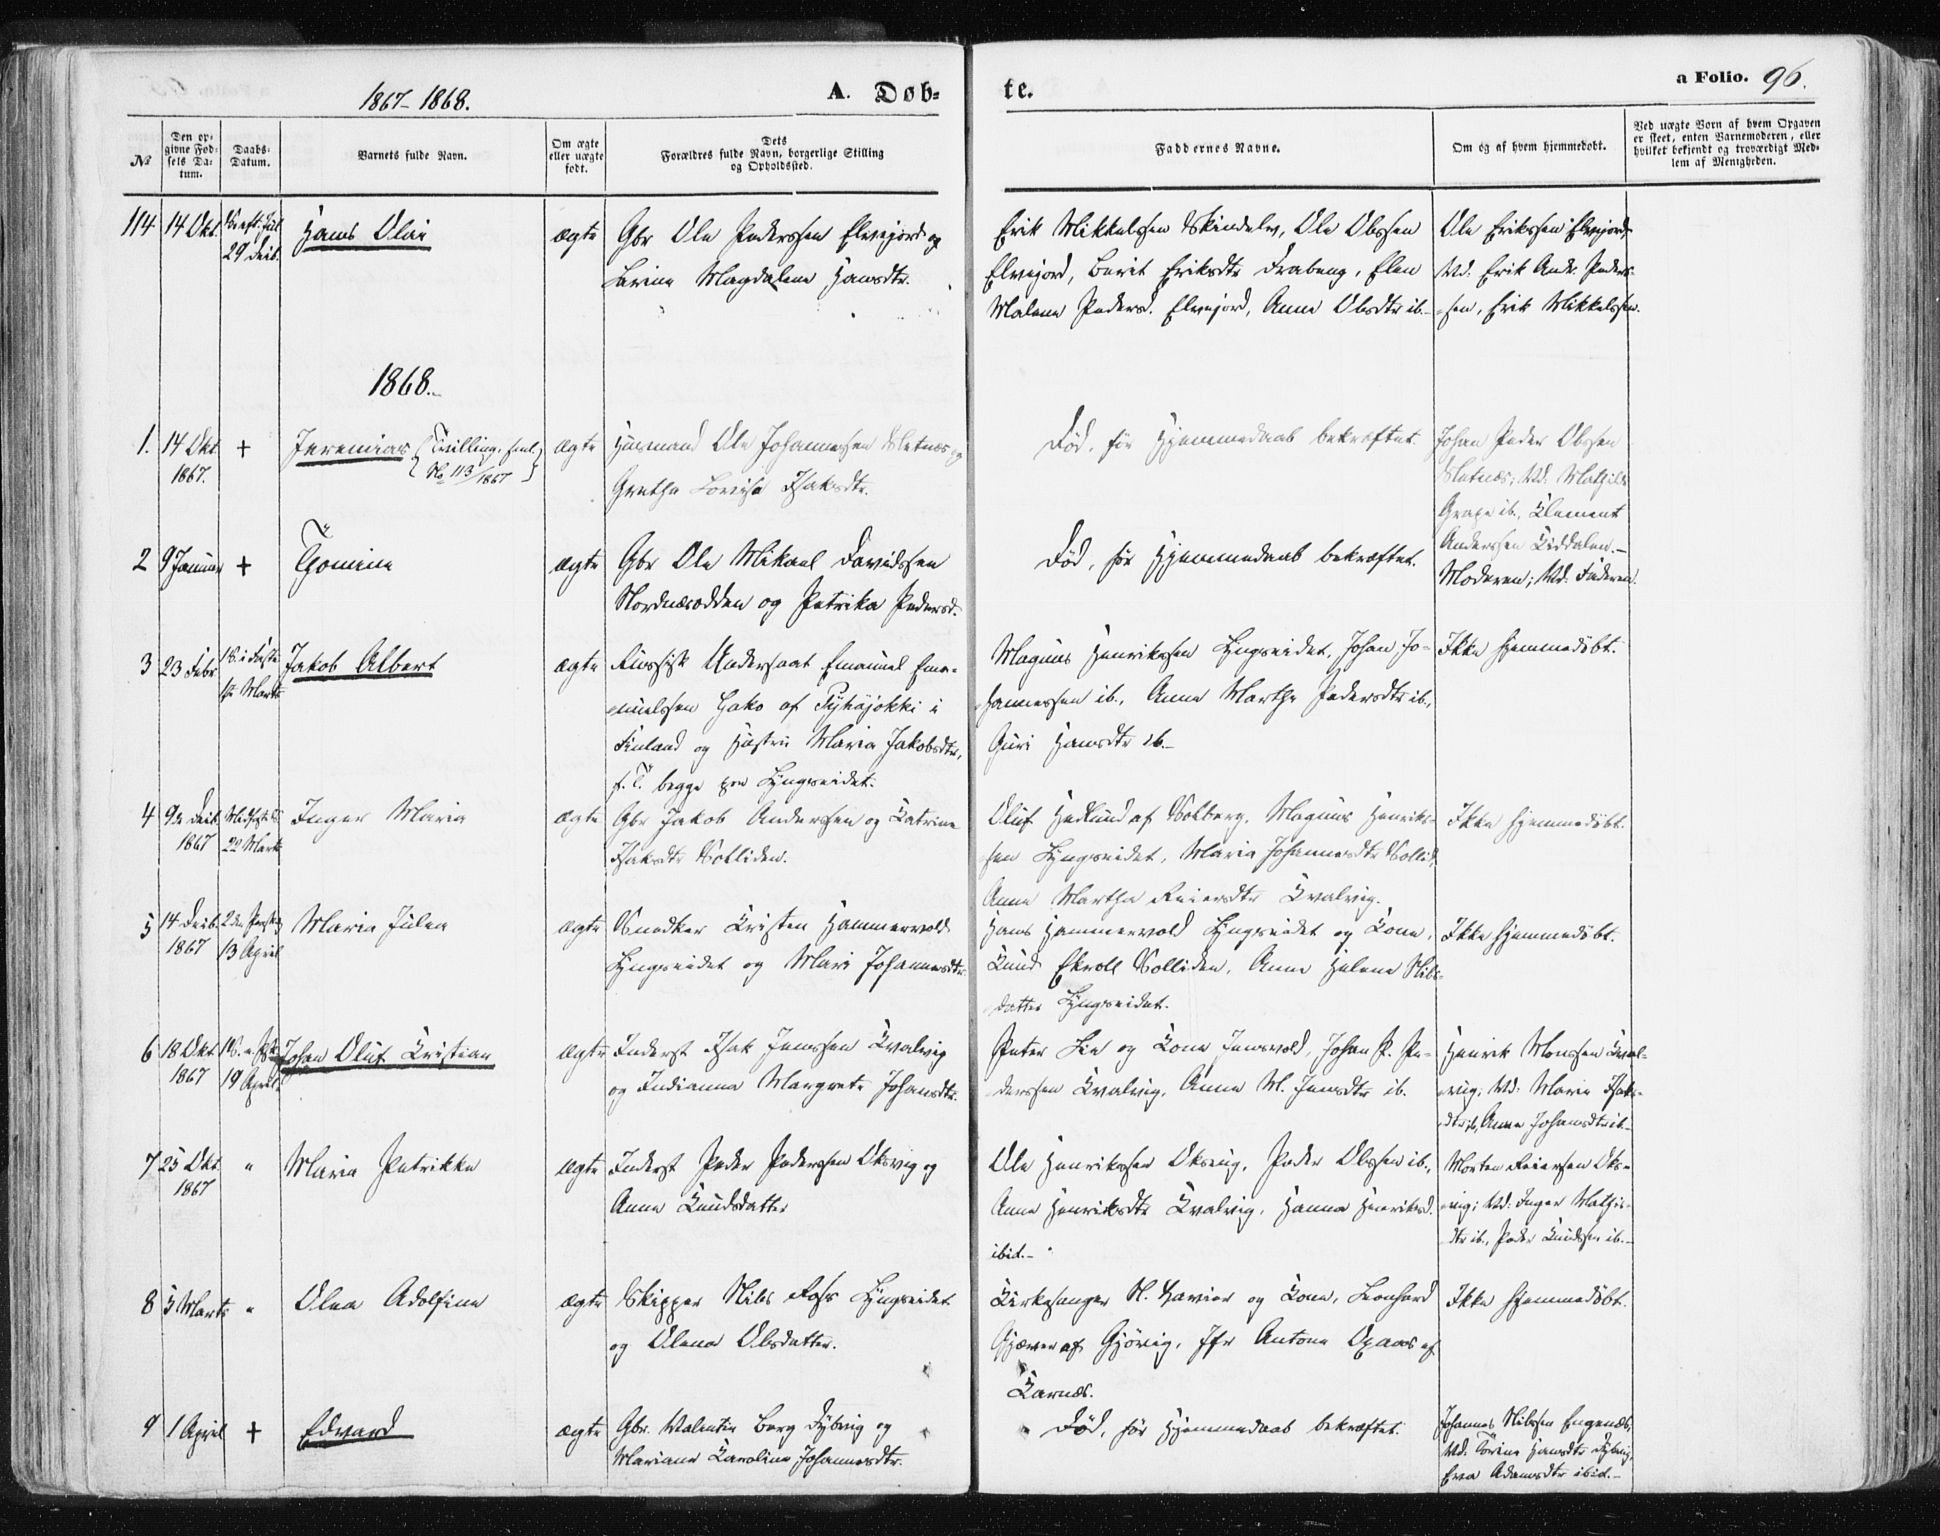 1867-1868.
A. Døb-
te.
a Folio. 96.
№
Den op-
givne Fød-
sels Da-
tum.
Daabs-
Datum.
Barnets fulde Navn.
Om ægte
eller uægte
født.
Dets
Forældres fulde Navn, borgerlige Stilling
og Opholdssted.
Faddernes Navne.
Om og af hvem hjemmedøbt.
Ved uægte Børn af hvem Opgaven
er skeet, enten Barnemoderen, eller
hvilket bekjendt og troværdigt Med-
lem af Menigheden.
114 14 Okt. S. eft. Jul
29 Decb.
Hans Olai
ægte
Gbr Ole Pederssen Elvejord og
Lovine Magdalena Hansdtr.
Erik Mikkelssen Skindelv, Ole Olssen
Elvejord, Berit Eriksdtr , Elen
Malene Pedersd. Elvejord, Anne Olsdtr ib.
Ole Erikssen Elvejord,
Vd. Erik Andr. Peders-
sen, Erik Mikkelssen.
1868.
1. 14 Okt.
1867.
+
Jeremias (Tvilling, sml.
No 113/1867)
ægte
Husmand Ole Johannessen Sletnæs og
Grethe Lovisa Isaksdtr.
Død, før Hjemmedaab bekræftet.
Johan Peder Olssen
Sletnæs; Vd. Mathilde
Grape ib., Clement
Anderssen Kiddalen.-
2 9 Januar +
Thomine
ægte
Gbr Ole Mikael Davidssen
Nordnæsodden og Petrika Pedersd.
Død, før Hjemmedaab bekræftet.
Moderen; Vd. Faderen.
3 23 Febr. 1 S. i Faste
1ste Marts
Jakob Albert
ægte
Russisk Undersaat Emanuel Ema-
nuelssen Hako af Pyhäjokki i
Finland og Hustru Maria Jakobsdtr,
f. T. begge paa Lyngseidet.
Magnus Henrikssen Lyngseidet, Johan Jo-
hannessen ib., Anne Marthe Pedersdtr ib.,
Guri Hansdtr ib.-
Ikke hjemmedøbt.
4 9de Decb.
1867
Midfaste S.
22 Marts
Inger Maria
ægte
Gbr Jakob Anderssen og Katrine
Isaksdtr Solliden.
Oluf Hedlund af Solberg, Magnus Henriks-
sen Lyngseidet, Maria Johannesdtr Sollid,
Anne Martha Reiersdtr Kvalvig.
Ikke hjemmedøbt.
5 14 Decb.
1867
2den Paaskd.
13 April
Maria Julea
ægte
Snedker Kristen Hammervold
Lyngseidet og Mari Johannesdtr.
Hans Hammervold Lyngseidet og Kone,
Knud Ekroll Solliden, Anne Helene Nils-
datter Lyngseidet.
Ikke hjemmedøbt.
6 18 Okt.
1867
1 S. e. Pske
19 April
Johan Oluf Kristian
ægte
Inderst Isak Jenssen Kvalvig
og Indianna Margrete Johansdtr.
Peter Lie og Kone Jensvold, Johan P. Pe-
derssen Kvalvig, Anne M. Jensdtr ib.
Henrik Monssen Kval-
vig; Vd: Maria Isaks-
dtr ib, Anne Johansdtr ib.-
7 25 Okt.
1867
"
Maria Petrikke
ægte
Inderst Peder Pederssen Oksvig og
Anne Knudsdatter
Ole Henrikssen Oksvig, Peder Olssen ib.,
Anne Henriksdtr Kvalvig, Hanna Henriksd.
ibid.-
Morten Reiersen Oks-
vig; Vd: Inger Mathis-
dtr ib., Peder Knudssen ib.-
8 5 Marts "
Olea Adolfine
ægte
Skipper Nils Foss Lyngseidet
og Olena Olsdatter.
Kirkesanger N. Havier og Kone, Leonhard
Gjæver af Gjøvig, Jfr Antone Opaas af
Karnæs.
Ikke hjemmedøbt.
9 1 April +
Edvard
ægte
Gbr. Valentin Berg Dybvig og
Mariane Karoline Johannesdtr.
Død, før Hjemmedaab bekræftet.
Johannes Nilssen Engenæs,
Vd. Torine Hansdtr Dybvig,
Eva Adamsdtr ibid.-